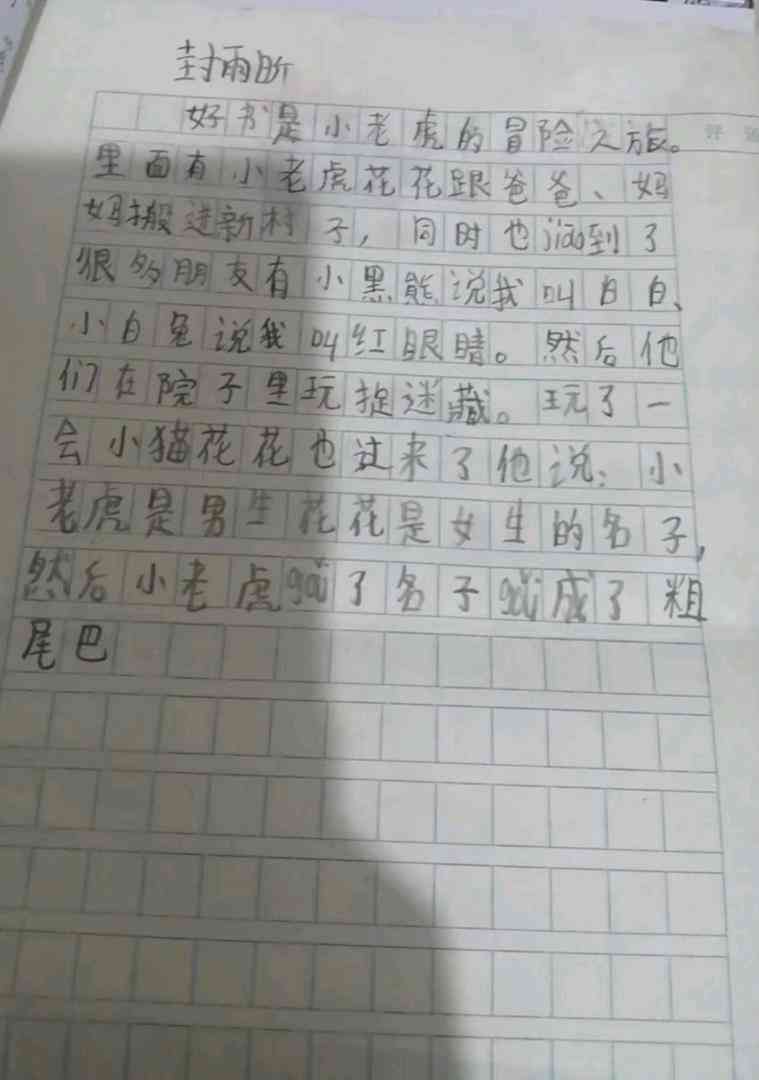 封雨昕
好书是小老虎的冒险之旅。
里面有小老虎花花跟爸爸、妈
妈搬进新村子，同时也jiāo到了
很多朋友有小黑熊说我叫白白、
小白兔说我叫红眼睛。然后他
们在院子里玩捉迷藏。玩了一
会小猫花花也过来了他说：小
老虎是男生花花是女生的名子，
然后小老虎gǎi了名子gǎi成了粗
尾巴